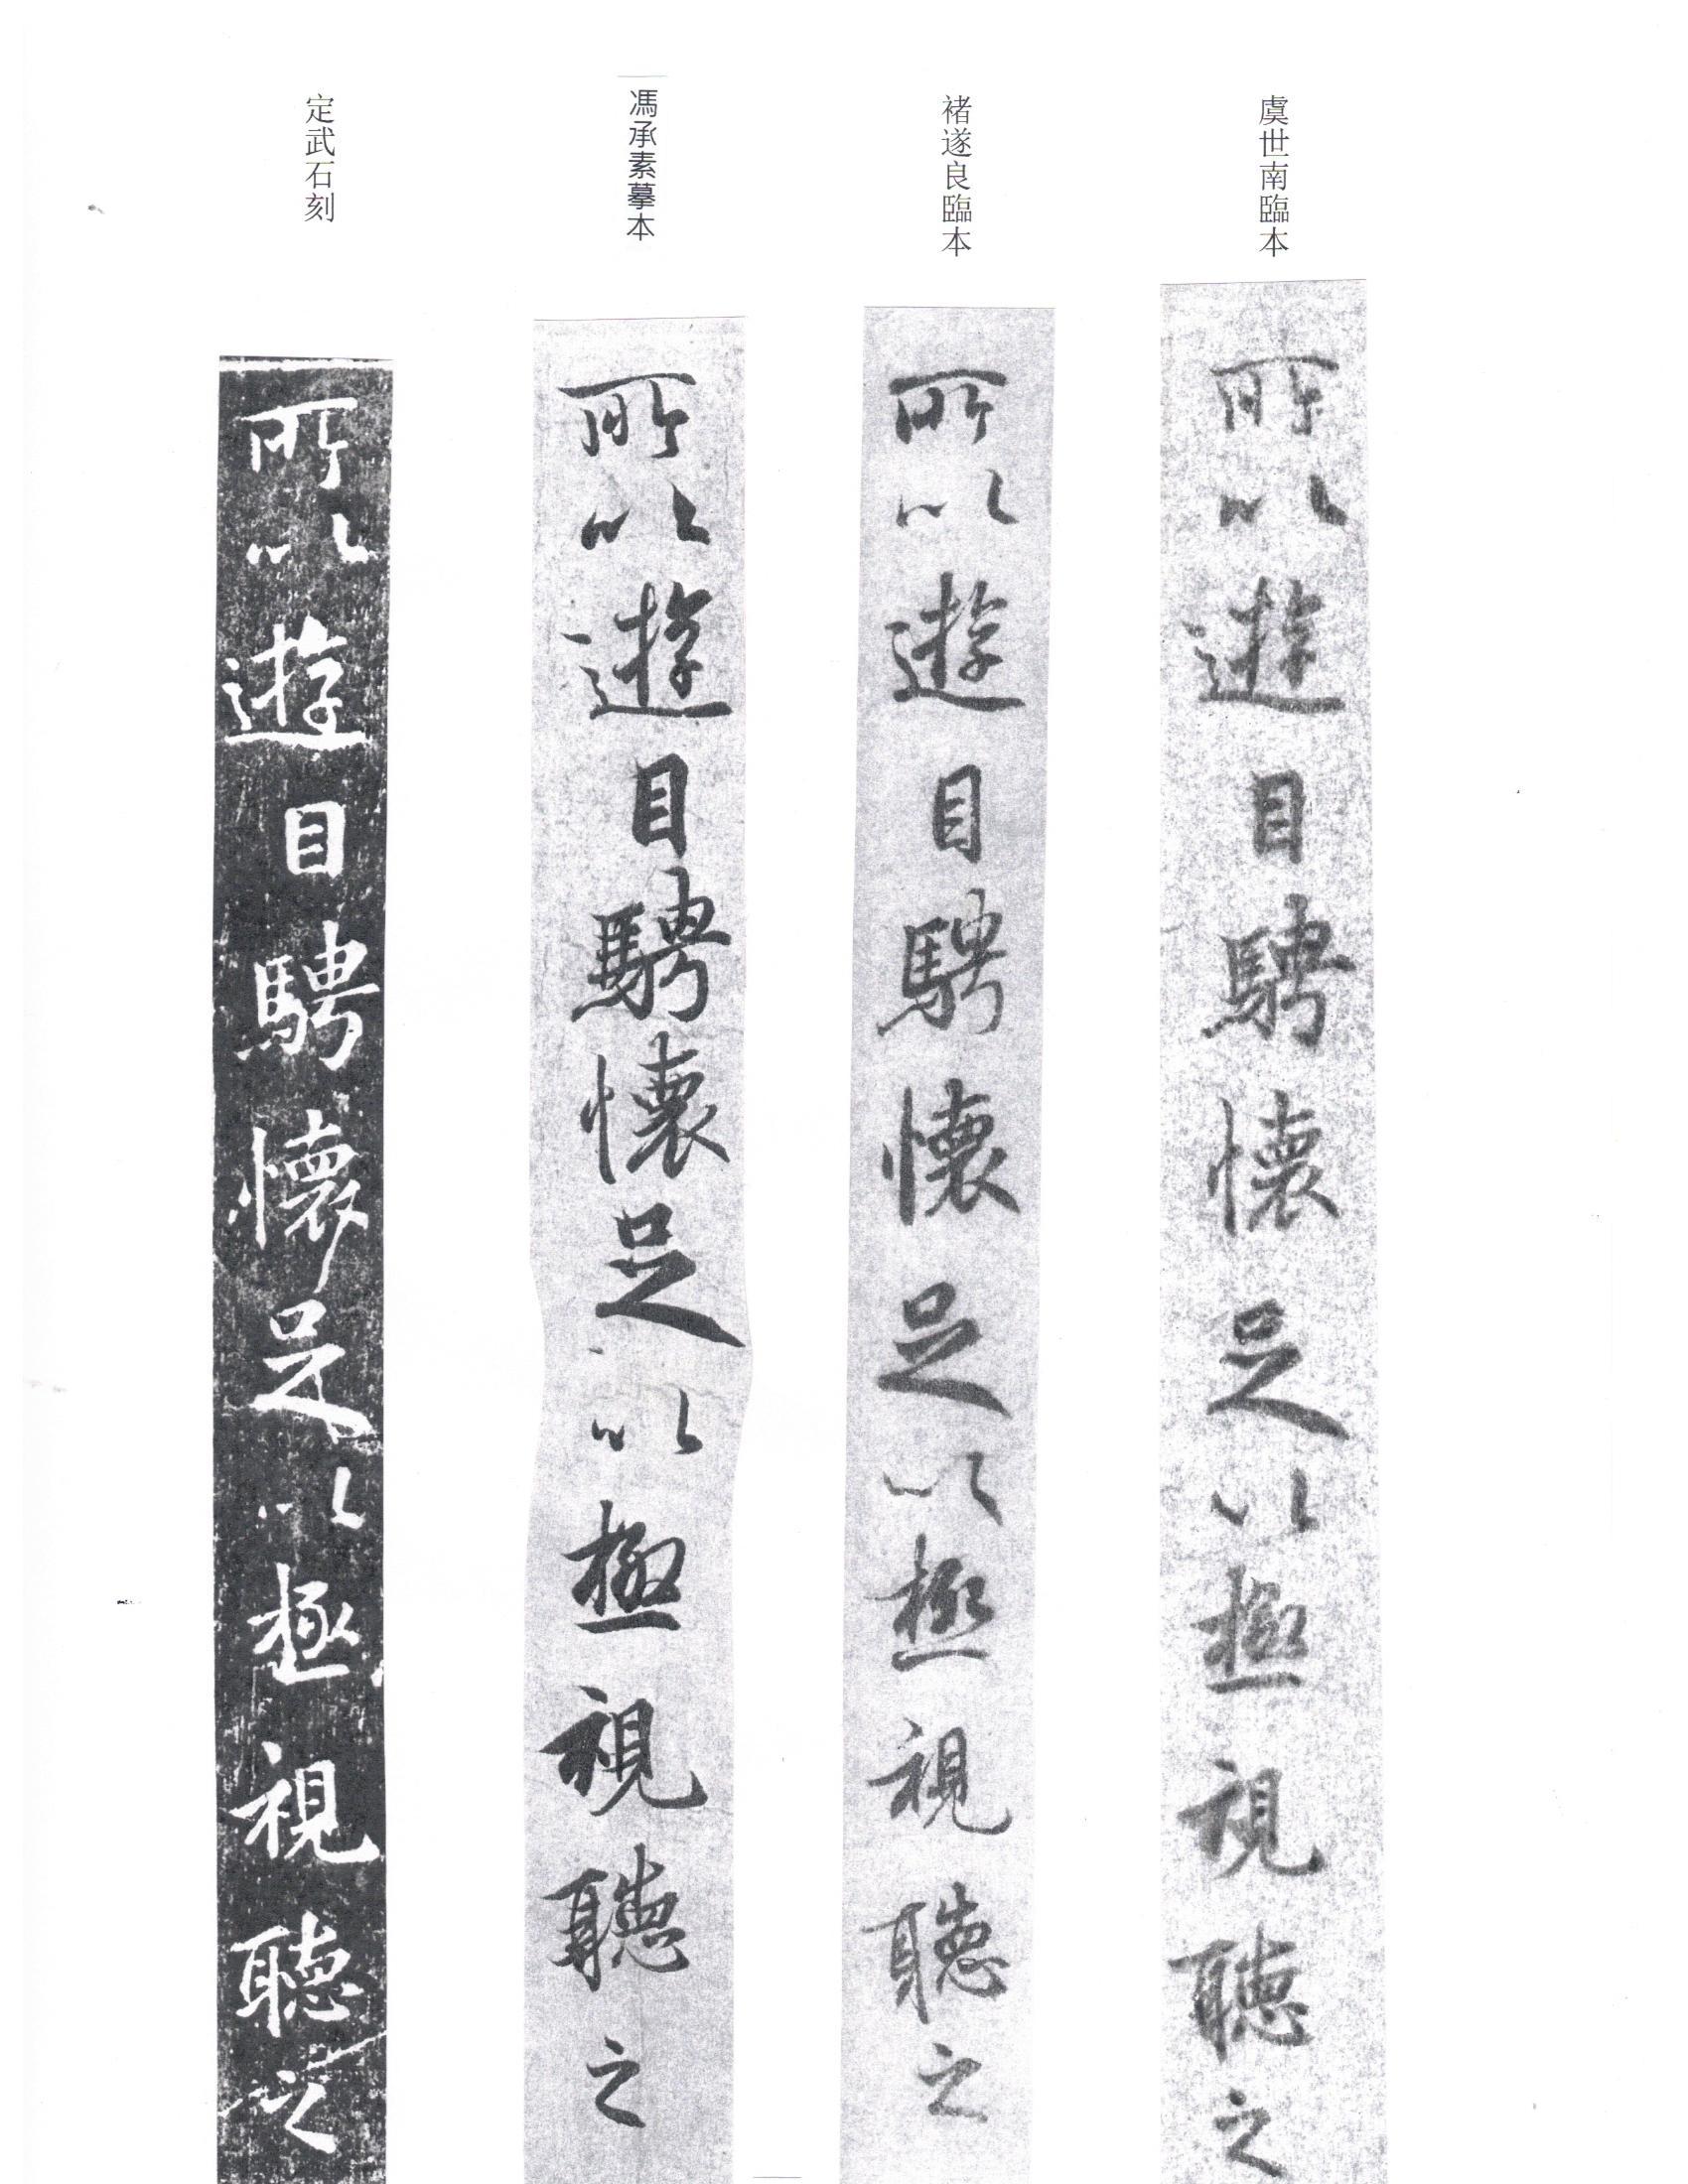 虞世南臨本
所以遊目騁懷足以極視聽之
褚遂良臨本
所以遊目騁懷足以極視聽之
馮承素摹本
所以遊目騁懷足以極視聽之
定武石刻
所以遊目騁懷足以極視聽之